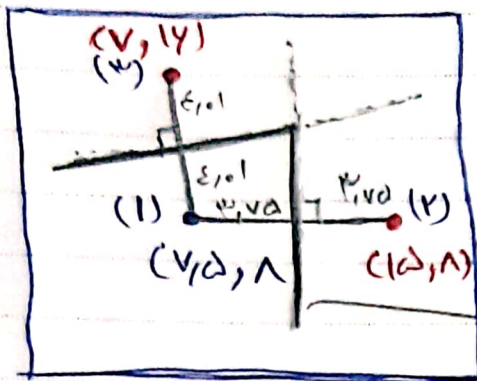 (۷, ۱۶)
(۳)
٤,۰۱
٤,۰۱
(۱) ۳,۷۵ ۳,۷۵ (۲)
(۷,۵, ۸) (۱۵, ۸)